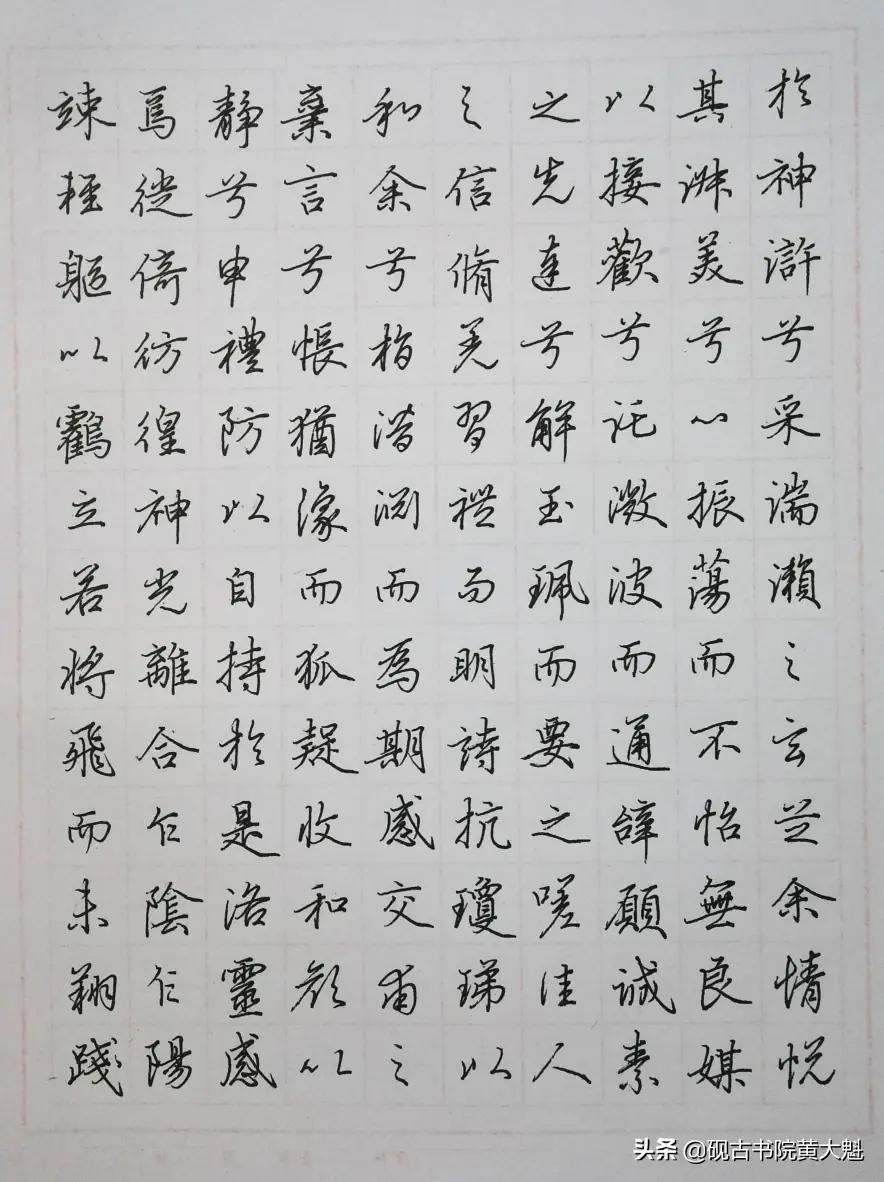 於神滸兮采湍瀨之玄芝余情悅
其淑美兮心振蕩而不怡無良媒
以接歡兮託微波而通辭願誠素
之先達兮解玉珮而要之嗟佳人
之信脩羌習禮而明詩抗瓊珶以
和余兮指潛淵而為期感交甫之
棄言兮悵猶豫而狐疑收和顏以
靜兮申禮防以自持於是洛靈感
焉徙倚彷徨神光離合乍陰乍陽
竦輕軀以鶴立若將飛而未翔踐
头条 @砚古书院黄大魁